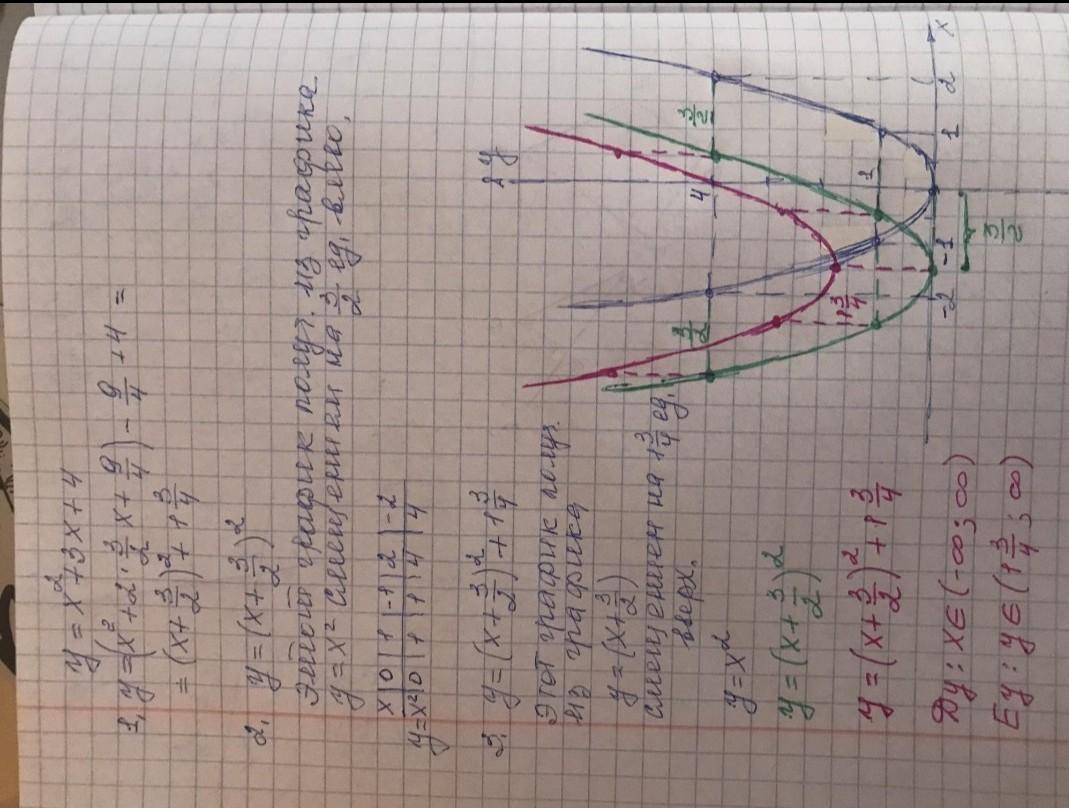 y = x² + 3x + 4
1, y = (x² + 2·3/2x + 9/4) - 9/4 + 4 =
= (x + 3/2)² + 1 3/4
2, y = (x + 3/2)²
Этот график получ. из графика
y = x² смещением на 3/2 ед, влево,
x | 0 | 1 | -1 | 2 | -2
y=x² | 0 | 1 | 1 | 4 | 4
3, y = (x + 3/2)² + 1 3/4
Этот график получ.
из графика
y = (x + 3/2)
смещением на 1 3/4 ед,
вверх.
y = x²
y = (x + 3/2)²
y = (x + 3/2)² + 1 3/4
Dy: x∈(-∞; ∞)
Ey: y∈(1 3/4; ∞)
y
3/2
3/2
4
1
1 3/4
-2
-1
1
2
x
3/2